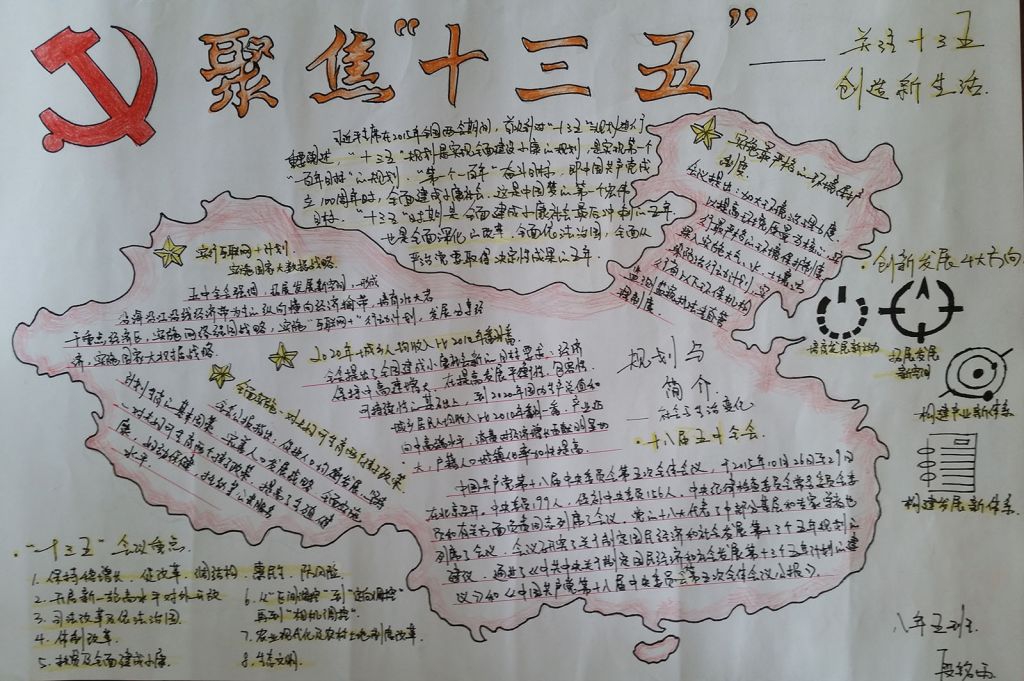 聚焦“十三五”
——关注十三五
创造新生活.
习近平主席在2015年全国两会期间，
“十三五”规划是实现全面建设小康的规划，是实现第一个
“百年目标”的规划．“第一个一百年”奋斗目标，即中国共产党成
立100周年时，全面建成小康社会．这是中国梦的第一个宏伟
目标．“十三五”时期是全面建成小康社会最后冲刺的五年．
也是全面深化改革、全面依法治国、全面从
严治党要取得决定性成果的五年．
实施最严格的环境保护
制度
会议提出：加大环境治理力度，
以提高环境质量为核心，
实行最严格的环境保护制度
深入实施大气、水、土壤污
染防治行动计划，实
行省以下环保机构
监测监察执法垂直管
理制度．
实行互联网+计划，
实施国家大数据战略．
五中全会强调，拓展发展新空间，形成
沿海沿江沿线经济带为主的纵向横向经济轴带，培育壮大若
干重点经济区，实施网络强国战略，实施“互联网+”行动计划，发展分享经
济，实施国家大数据战略．
2020年城乡人均收入比2010年翻番
全会提出了全面建成小康社会新的目标要求：经济
保持中高速增长，在提高发展平衡性、包容性、
可持续性的基础上，到2020年国内生产总值和
城乡居民人均收入比2010年翻一番，产业迈
向中高端水平，消费对经济增长贡献明显加
大，户籍人口城镇化率加快提高．
全面实施一对夫妇可生育两个孩子政策
全会公报指出：促进人口均衡发展，坚持
计划生育的基本国策，完善人口发展战略，全面实施
一对夫妇可生育两个孩子政策．
水平．
规划与
简介．
——社会生活变化
·十八届五中全会．
中国共产党第十八届中央委员会第五次全体会议，于2015年10月26日至29日
在北京召开．中央委员199人，候补中央委员156人．中央纪律检查委员会常务委员会委
员和有关方面负责同志列席了会议．党的十八大代表中部分基层和专家学者也
列席了会议．会议研究了关于制定国民经济和社会发展第十三个五年规划的
建议．通过了《中共中央关于制定国民经济和社会发展第十三个五年计划的建
议》和《中国共产党第十八届中央委员会第五次全体会议公报》．
·创新发展4大方向
培育发展新动力
拓展发展
新空间
构建产业新体系
构建发展新体系．
·“十三五”会议重点．
1. 保持稳增长、促改革、调结构、惠民生、防风险．
2. 开展新一轮高水平对外开放
3. 司法改革及依法治国．
4. 体制改革．
5. 扶贫及全面建成小康．
6. 从“区间调控”到“定向调控”
再到“相机调控”．
7. 农业现代化及农村土地制度改革．
8. 生态文明．
八年五班．